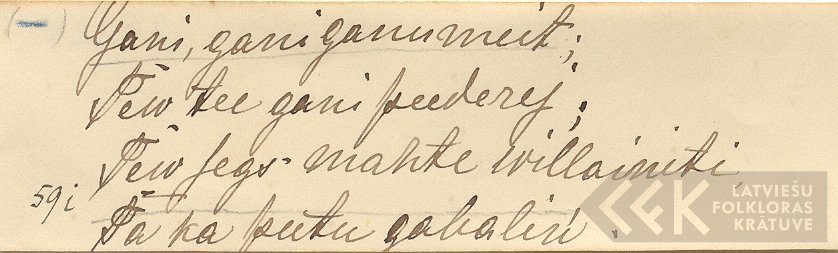 (–)
Gani, gani ganu meit;
Tēw tee gani peederej;
Tēw segs mahte willainiti,
59i
Tā kā putu gabaliņ.
LATVIEŠU
FOLKLORAS
KRĀTUVE